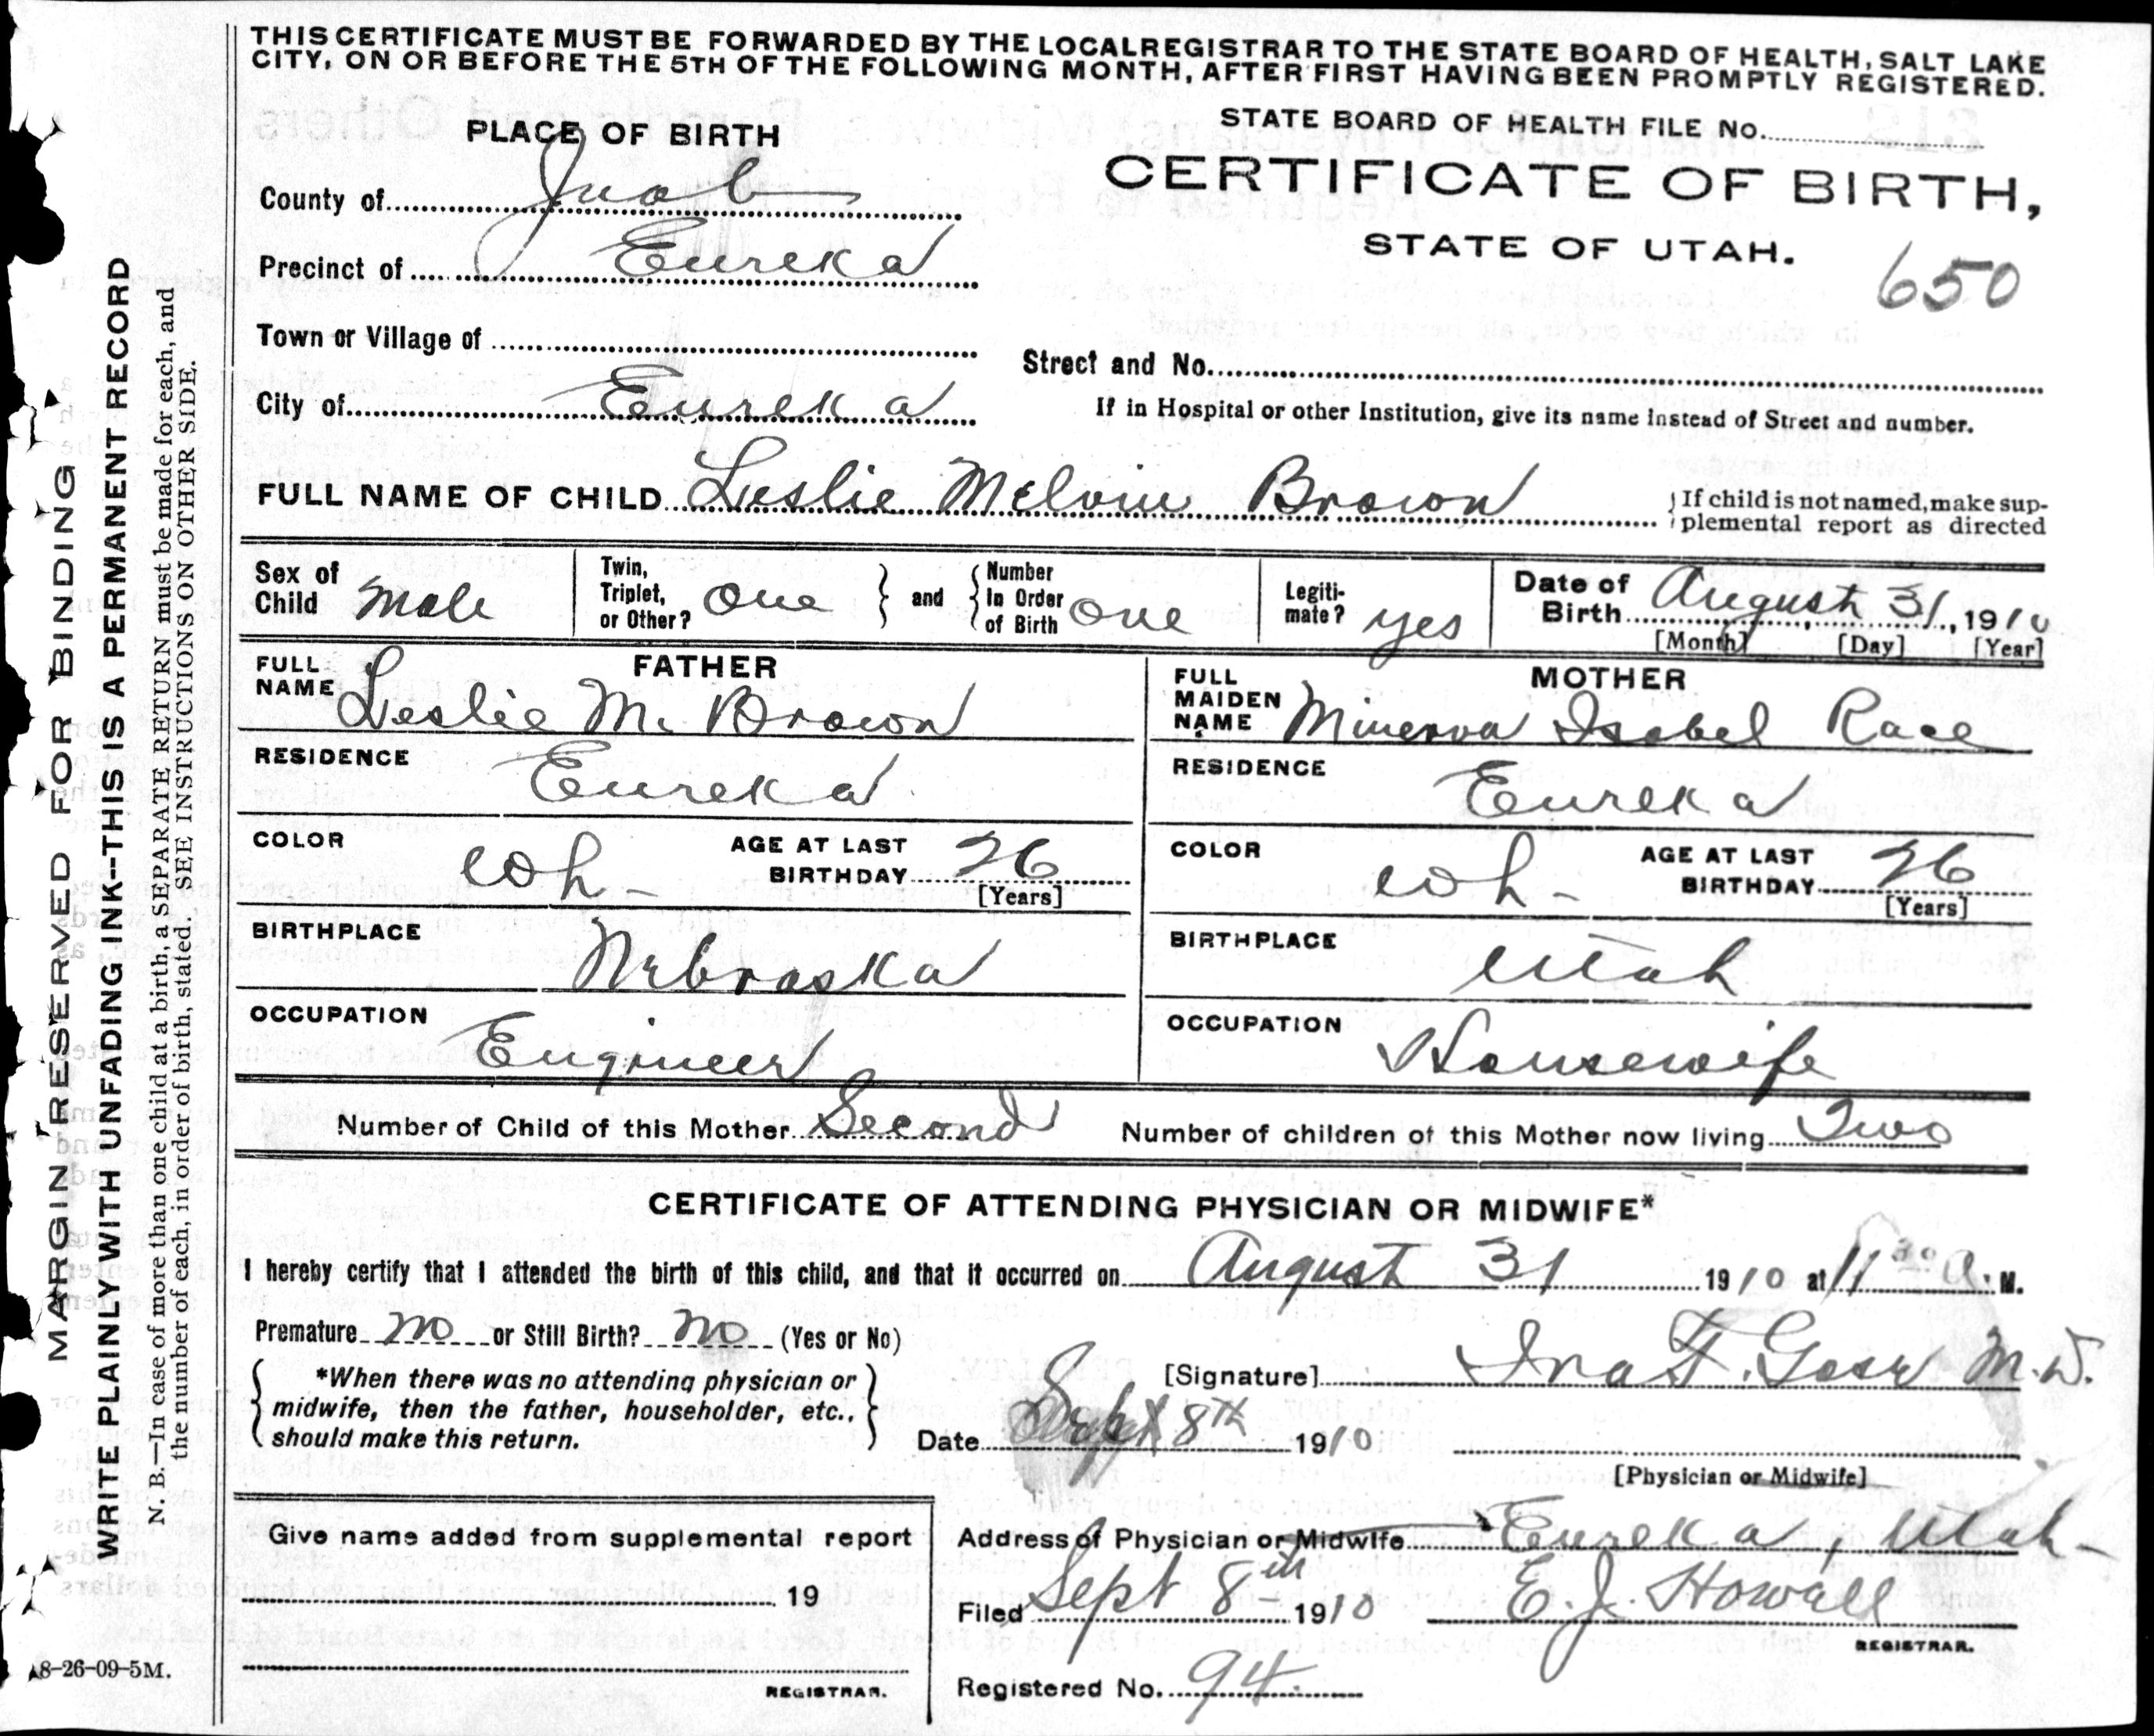 THIS CERTIFICATE MUST BE FORWARDED BY THE LOCAL REGISTRAR TO THE STATE BOARD OF HEALTH, SALT LAKE
CITY, ON OR BEFORE THE 5TH OF THE FOLLOWING MONTH, AFTER FIRST HAVING BEEN PROMPTLY REGISTERED.
PLACE OF BIRTH
STATE BOARD OF HEALTH FILE No.
CERTIFICATE OF BIRTH,
STATE OF UTAH.
650
County of Juab
Precinct of Eureka
Town or Village of
Street and No.
City of Eureka
If in Hospital or other Institution, give its name instead of Street and number.
FULL NAME OF CHILD Leslie Melvin Brown
If child is not named, make sup-
plemental report as directed
Sex of Child Male
Twin, Triplet, or Other? One and Number In Order of Birth One
Legiti-mate? yes
Date of Birth August 31, 1910
[Month] [Day] [Year]
FATHER
FULL NAME Leslie M. Brown
RESIDENCE Eureka
COLOR wh- AGE AT LAST BIRTHDAY 26
[Years]
BIRTHPLACE Nebraska
OCCUPATION Engineer
MOTHER
FULL MAIDEN NAME Minerva Isabel Race
RESIDENCE Eureka
COLOR wh- AGE AT LAST BIRTHDAY 26
[Years]
BIRTHPLACE Utah
OCCUPATION Housewife
Number of Child of this Mother Second Number of children of this Mother now living Two
CERTIFICATE OF ATTENDING PHYSICIAN OR MIDWIFE*
I hereby certify that I attended the birth of this child, and that it occurred on August 31 1910 at 11 30 a. M.
Premature no or Still Birth? no (Yes or No)
*When there was no attending physician or
midwife, then the father, householder, etc.,
should make this return.
[Signature] M.D.
Date Sept 8th 1910
[Physician or Midwife]
Address of Physician or Midwife Eureka, Utah-
Filed Sept 8th 1910 E. J. Howall
REGISTRAR.
Registered No. 94.
Give name added from supplemental report
19
REGISTRAR.
8-26-09-5M.
MARGIN RESERVED FOR BINDING
WRITE PLAINLY WITH UNFADING INK--THIS IS A PERMANENT RECORD
N. B.—In case of more than one child at a birth, a SEPARATE RETURN must be made for each, and
the number of each, in order of birth, stated. SEE INSTRUCTIONS ON OTHER SIDE.